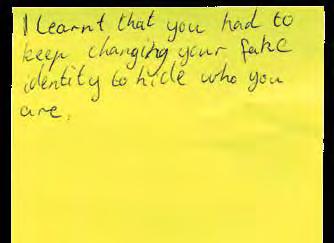 I learnt that you had to
keep changing your fake
identity to hide who you
are.